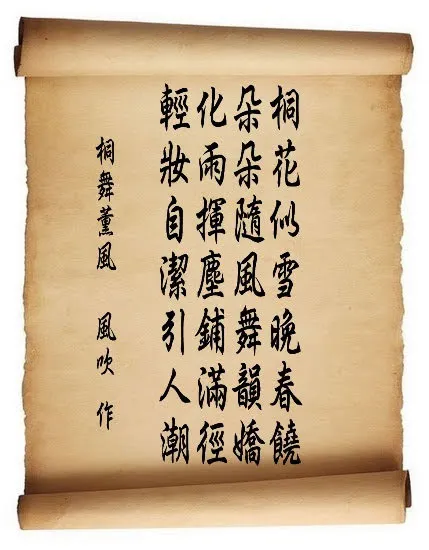 桐花似雪晚春饒
朵朵隨風舞韻嬌
化雨揮塵鋪滿徑
輕妝自潔引人潮
桐舞薰風 風吹 作